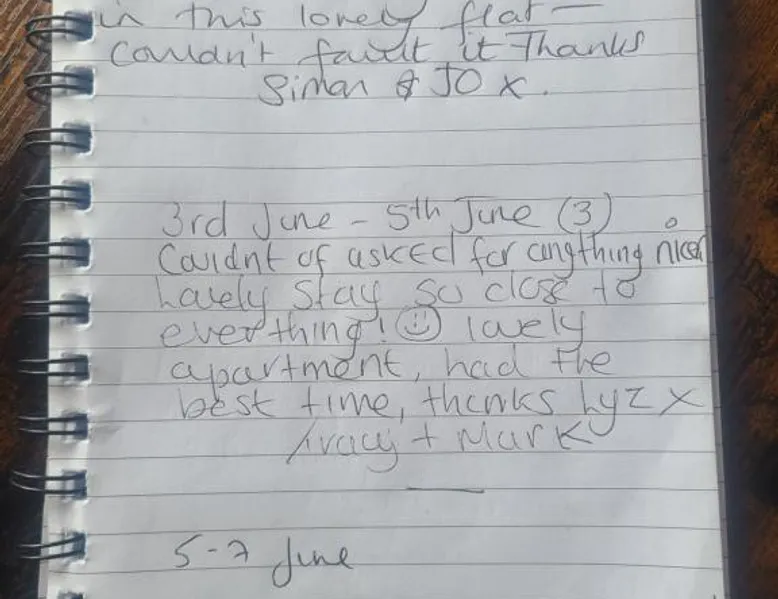 in this lovely flat —
Couldn't fault it Thanks
Simon & JO x.
3rd June - 5th June (3)
Couldnt of asked for anything nicer
Lovely stay so close to
everthing! ☺ lovely
apartment, had the
best time, thanks Lyz x
Tracy + Mark
5-7 June